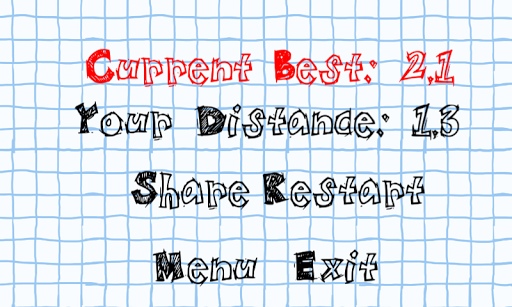 Current Best: 2,1
Your Distance: 1,3
Share Restart
Menu Exit